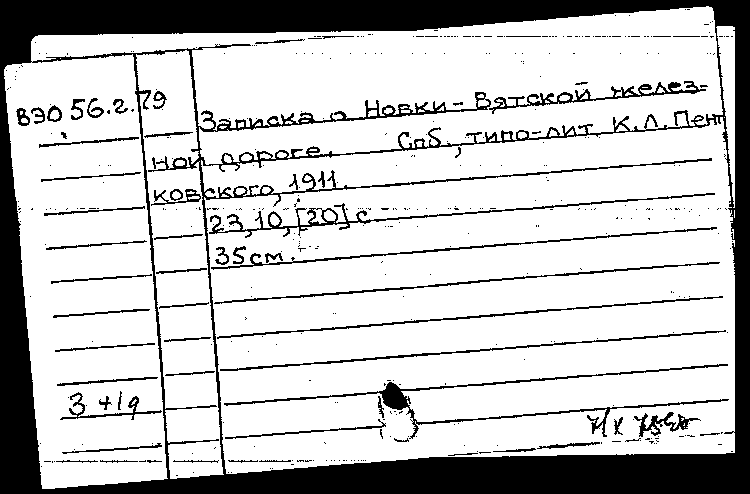 ВЭО 56.2.79
Записка о Новки-Вятской желез=
ной дороге. Спб., типо-лит. К.Л. Пент
ковского, 1911.
23,10,[20] с.
35 см.
3